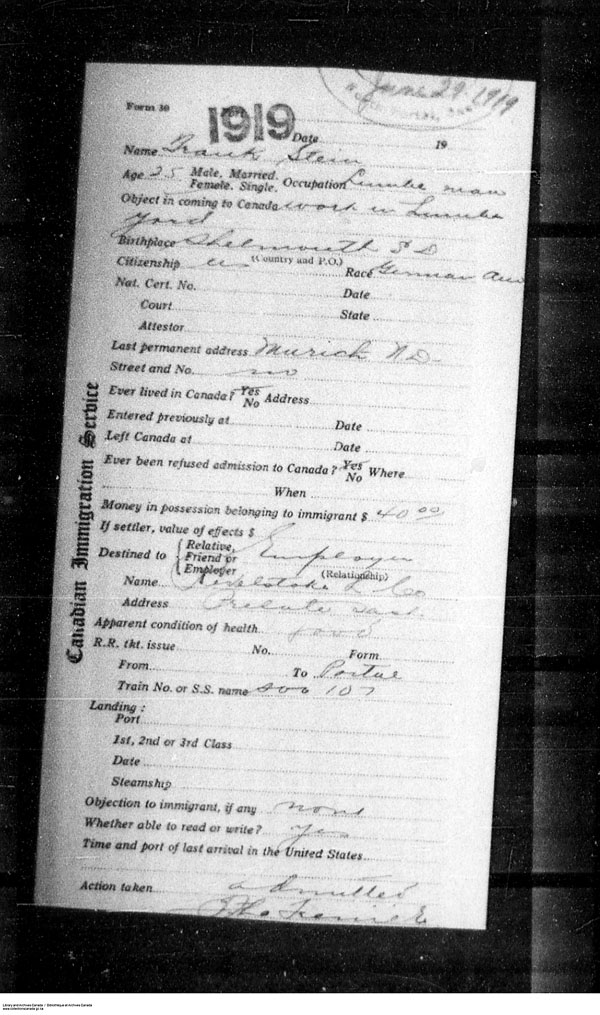 June 29, 1919
Form 30
1919 Date 19
Name Frank Stein
Age 25 Male. Married. Female. Single. Occupation Lumber man
Object in coming to Canada work in Lumber
yard
Birthplace S D
(Country and P.O.)
Citizenship US Race German Am
Nat. Cert. No. Date
Court State
Attestor
Last permanent address Munich N D
Street and No. no
Ever lived in Canada? Yes No Address
Entered previously at Date
Left Canada at Date
Ever been refused admission to Canada? Yes No Where
When
Money in possession belonging to immigrant $ 40 00
If settler, value of effects $
Destined to { Relative, Friend or Employer Employer
(Relationship)
Name Revelstoke L Co
Address Prelate Sask.
Apparent condition of health good
R.R. tkt. issue No. Form
From To Portal
Train No. or S.S. name Soo 107
Landing :
Port
1st, 2nd or 3rd Class
Date
Steamship
Objection to immigrant, if any none
Whether able to read or write? yes
Time and port of last arrival in the United States
Action taken admitted
Canadian Immigration Service
Library and Archives Canada / Bibliothèque et Archives Canada
www.collectionscanada.gc.ca